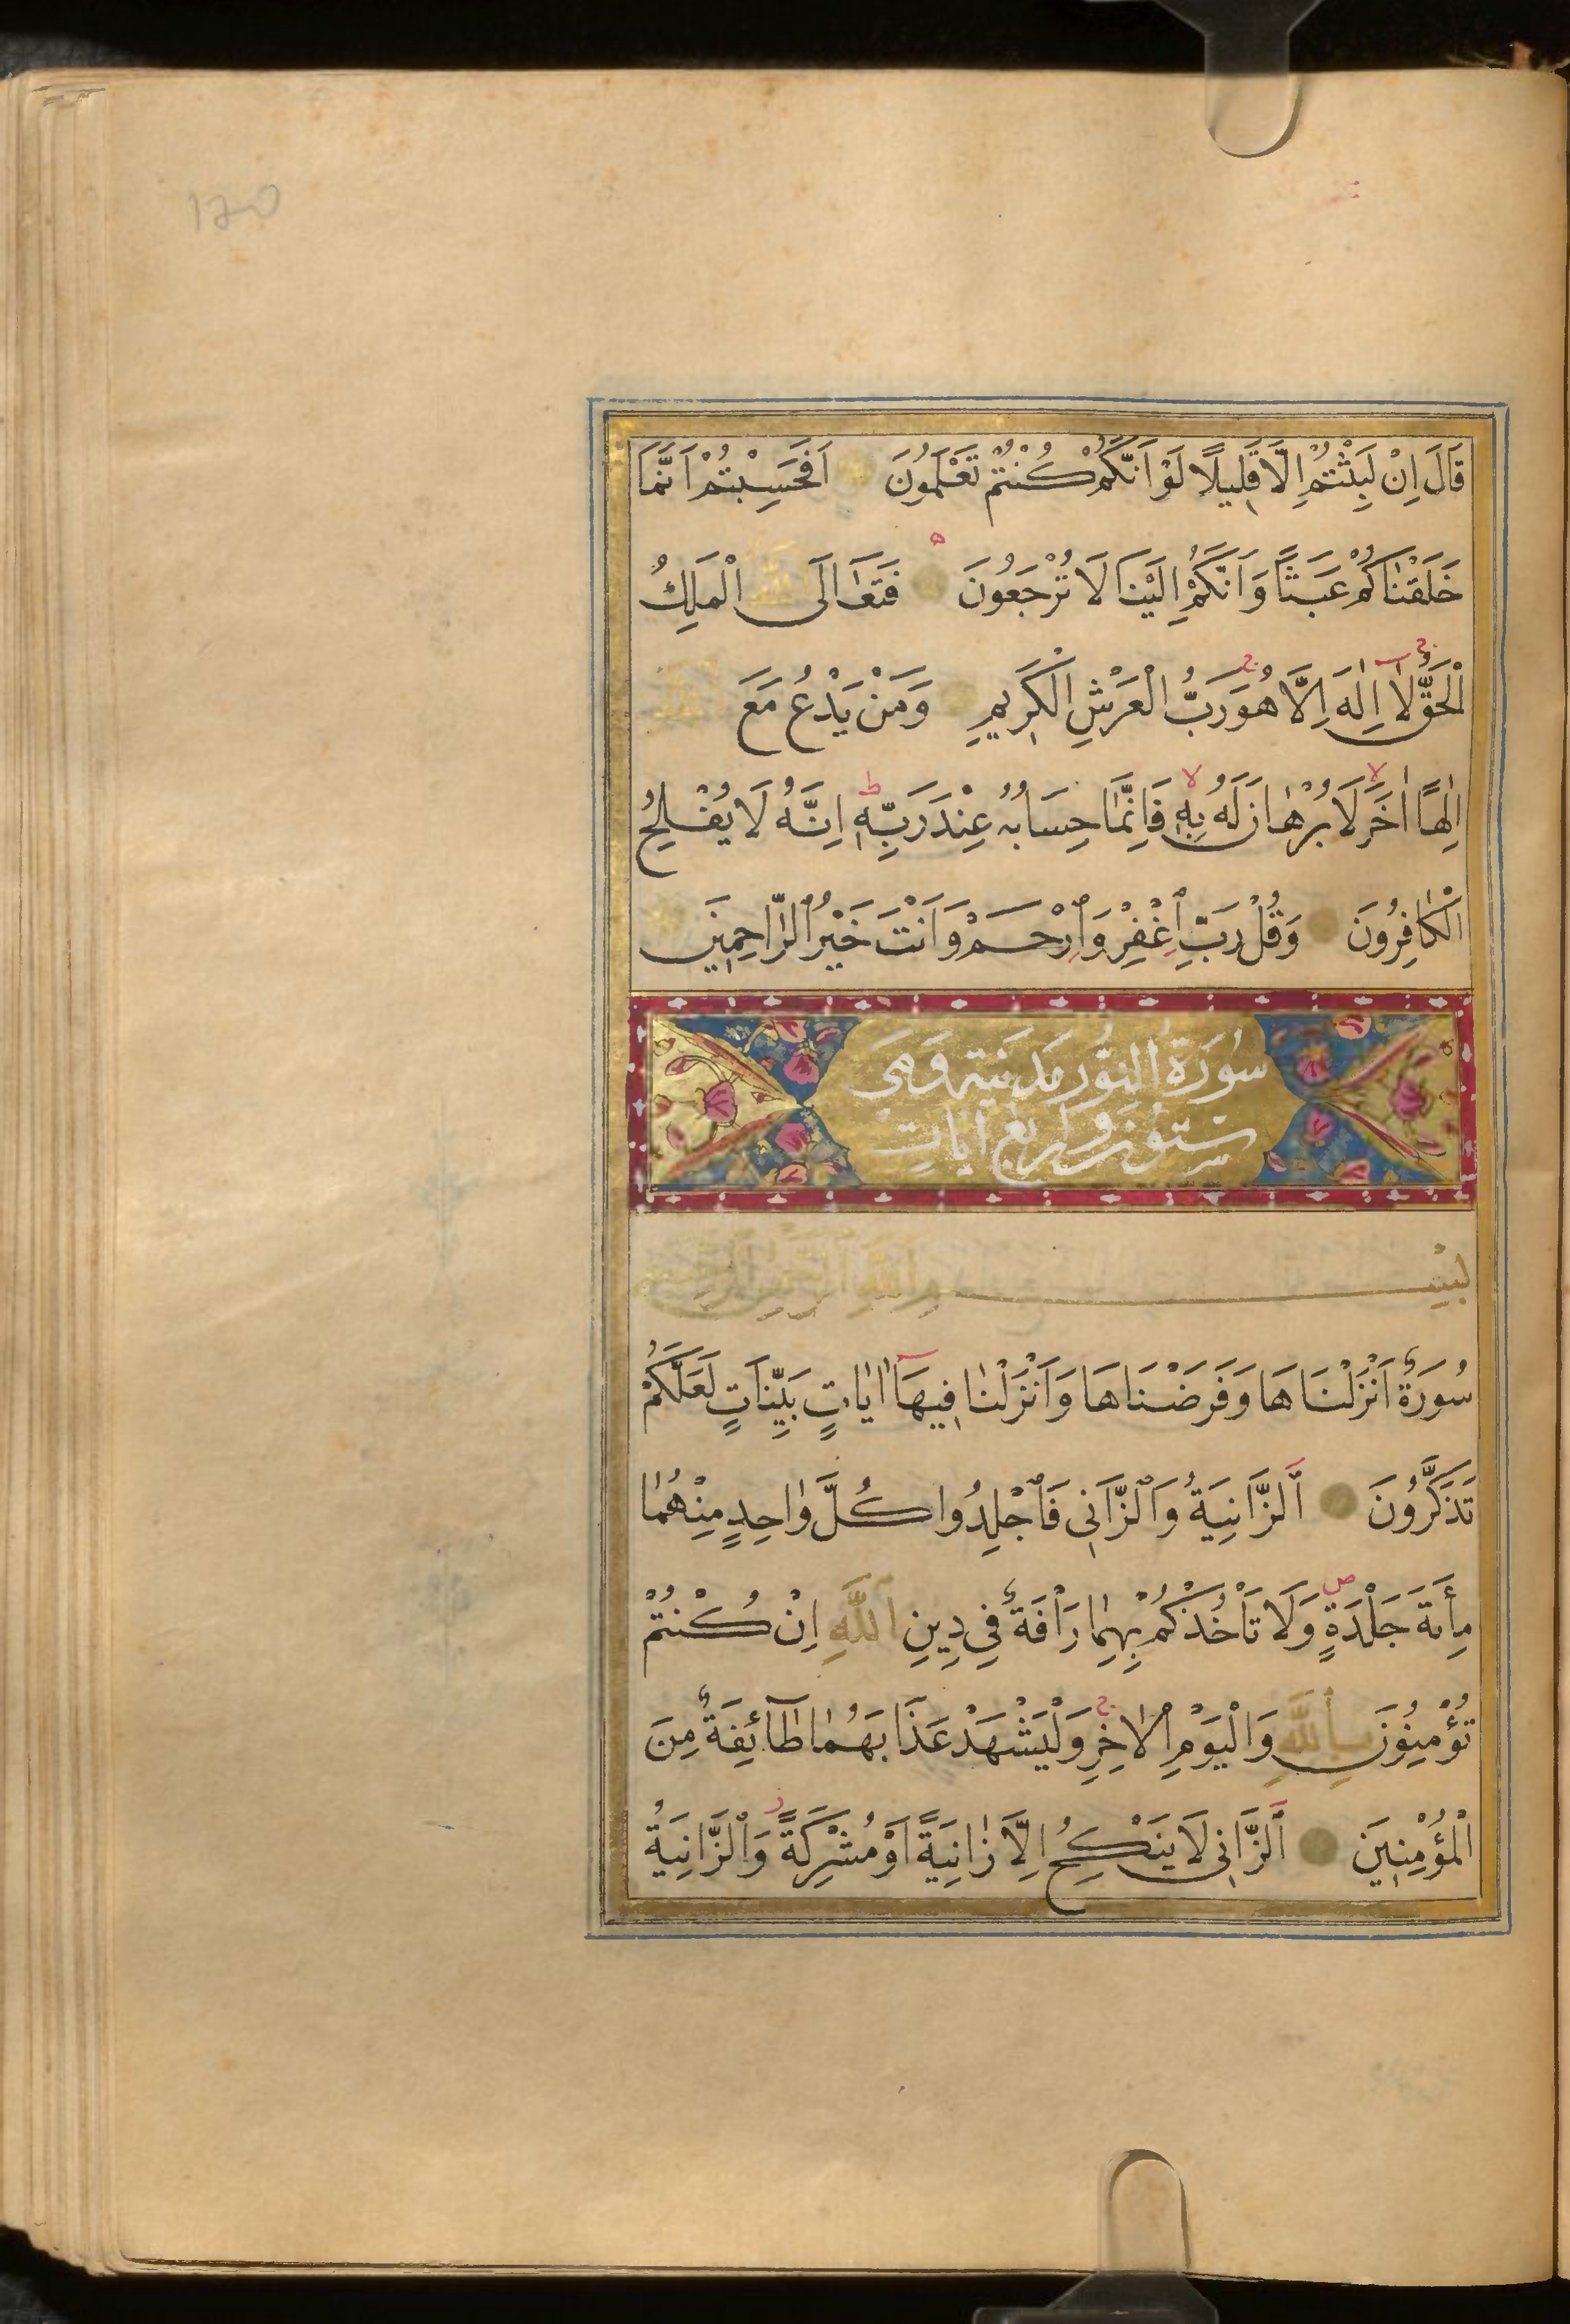 120
قَالَ اِنْ لَبِثْتُمْ اِلَّا قَلِيلًا لَوْ اَنَّكُمْ كُنْتُمْ تَعْلَمُونَ اَفَحَسِبْتُمْ اَنَّمَا
خَلَقْنَاكُمْ عَبَثًا وَاَنَّكُمْ اِلَيْنَا لَا تُرْجَعُونَ فَتَعَالَى اللّٰهُ الْمَلِكُ
الْحَقُّ لَا اِلٰهَ اِلَّا هُوَ رَبُّ الْعَرْشِ الْكَرِيمِ وَمَنْ يَدْعُ مَعَ اللّٰهِ
اِلٰهًا اٰخَرَ لَا بُرْهَانَ لَهُ بِهِ فَاِنَّمَا حِسَابُهُ عِنْدَ رَبِّهِ اِنَّهُ لَا يُفْلِحُ
الْكَافِرُونَ وَقُلْ رَبِّ اغْفِرْ وَارْحَمْ وَاَنْتَ خَيْرُ الرَّاحِمِينَ
سُورَةُ النُّور مَدَنِيَّة وَهِيَ
سِتُّونَ وَاَرْبَع اٰيَات
بِسْمِ اللّٰهِ الرَّحْمٰنِ الرَّحِيمِ
سُورَةٌ اَنْزَلْنَاهَا وَفَرَضْنَاهَا وَاَنْزَلْنَا فِيهَا اٰيَاتٍ بَيِّنَاتٍ لَعَلَّكُمْ
تَذَكَّرُونَ اَلزَّانِيَةُ وَالزَّانِى فَاجْلِدُوا كُلَّ وَاحِدٍ مِنْهُمَا
مِأَةَ جَلْدَةٍ وَلَا تَأْخُذْكُمْ بِهِمَا رَاْفَةٌ فِى دِينِ اللّٰهِ اِنْ كُنْتُمْ
تُؤْمِنُونَ بِاللّٰهِ وَالْيَوْمِ الْاٰخِرِ وَلْيَشْهَدْ عَذَابَهُمَا طَآئِفَةٌ مِنَ
الْمُؤْمِنِينَ اَلزَّانِى لَا يَنْكِحُ اِلَّا زَانِيَةً اَوْ مُشْرِكَةً وَالزَّانِيَةُ